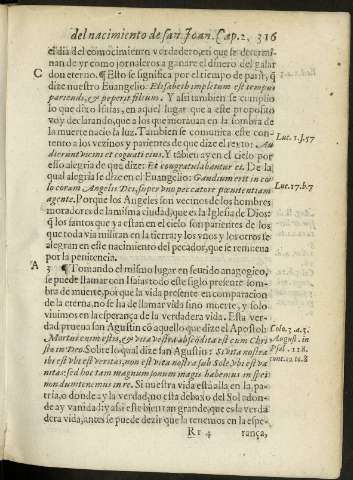 del nacimiento de san Joan. Cap. 2, 316
el dia del conocimiento verdadero, en que se determi-
nan de yr como jornaleros a ganare el dinero del galar
C don eterno. ¶ Esto se significa por el tiempo de parir, q̃
dize nuestro Euangelio. Elisabeth impletum est tempus
pariendi, & peperit filium. Y assi tambien se cumplio
lo que dixo Isaias, en aquel lugar que a este proposito
voy declarando, que a los que morauan en la sombra de
la muerte nacio la luz. Tambien se comunica este con-
tento a los vezinos y parientes de que dize el texto: Au-
dierunt vicini et cognati eius. Y tãbien ay en el cielo por
esso alegria de que dize: Et congratulabantur ei. De la
qual alegria se dize en el Euangelio: Gaudium erit in cœ
lo coram Angelis Dei, super vno peccatore pœnitentiam
agente. Porque los Angeles son vecinos de los hombres
moradores de la misma ciudad, que es la Iglesia de Dios:
q̃ los santos que ya estan en el cielo son parientes de los
que toda via militan en la tierra: y los vnos y los otros se
alegran en este nacimiento del pecador, que se renueua
por la penitencia.
Luc. 1. f. 57
Luc. 17. b. 7
A 3 ¶ Tomando el mismo lugar en sentido anagogico,
se puede llamar con Isaias todo este siglo presente som-
bra de muerte, por que la vida presente en comparacion
de la eterna, no se ha de llamar vida sino muerte, y solo
viuimos en la esperança de la verdadera vida. Esta ver-
dad prueua san Agustin cõ aquello que dize el Apostol:
Mortui enim estis, & vita vestra abscõdita est cum Chri
sto in Deo. Sobre lo qual dize san Agustin: Si vita nostra
ibi est vbi est veritas, non est vita nostra sub Sole, vbi est va
nitas: sed hoc tam magnum solum magis habemus in spe:
non dum tenemus in re. Si nuestra vida està alla en la pa-
tria, o donde ay la verdad, no està debaxo del Sol adon-
de ay vanidad: y assi este bien tan grande, que es la verda
dera vida, antes se puede dezir que la tenemos en la espe-
Colo. 3. a. 3.
August. in
Psal. 118.
Rr 4 rança,